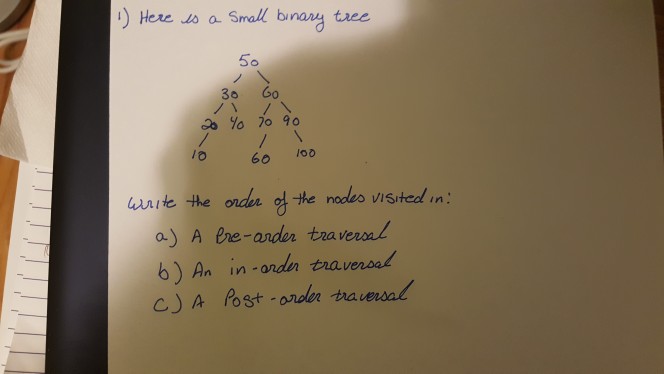 1) Here is a Small binary tree
50
30 60
20 40 70 90
10 60 100
Write the order of the nodes visited in:
a) A Pre-order traversal
b) An in-order traversal
c) A Post-order traversal